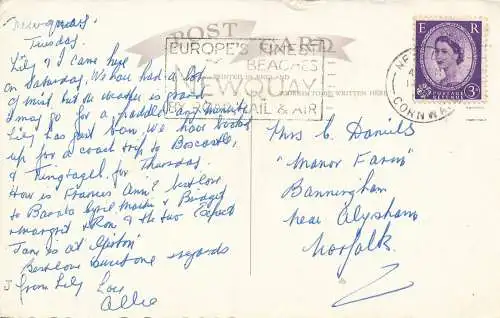 Newquay
Tuesday.
Lily & I came here
on Saturday. We have had a lot
of mist but the weather is good
I may go for a paddle any minute
Lily has just been, We have booked
up for a coach trip to Boscastle,
& Tingtagel for Thursday.
How is Frances Ann? best love
to Cyril & Bridget
& Margaret & Ron & the two
Jane is at
Best love & regards
from Lily
Allie
POST CARD
PRINTED IN ENGLAND
ADDRESS TO BE WRITTEN HERE
EUROPE'S FINEST
BEACHES
NEWQUAY
RAIL & AIR
CORNWALL
E R
POSTAGE
REVENUE
3D
Mrs C. Daniels
"Manor Farm"
Banningham
near Aylsham
Norfolk.